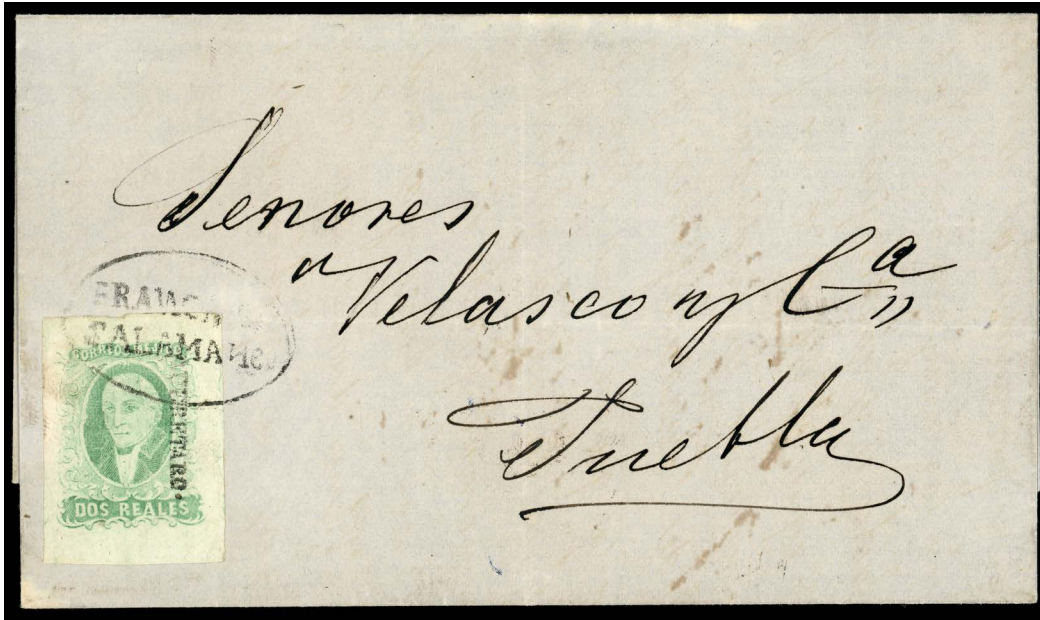 Senores
Velasco y Cª
Puebla
FRANCO
SALAMANCA
CORREOS MEJICO
QUERETARO.
DOS REALES